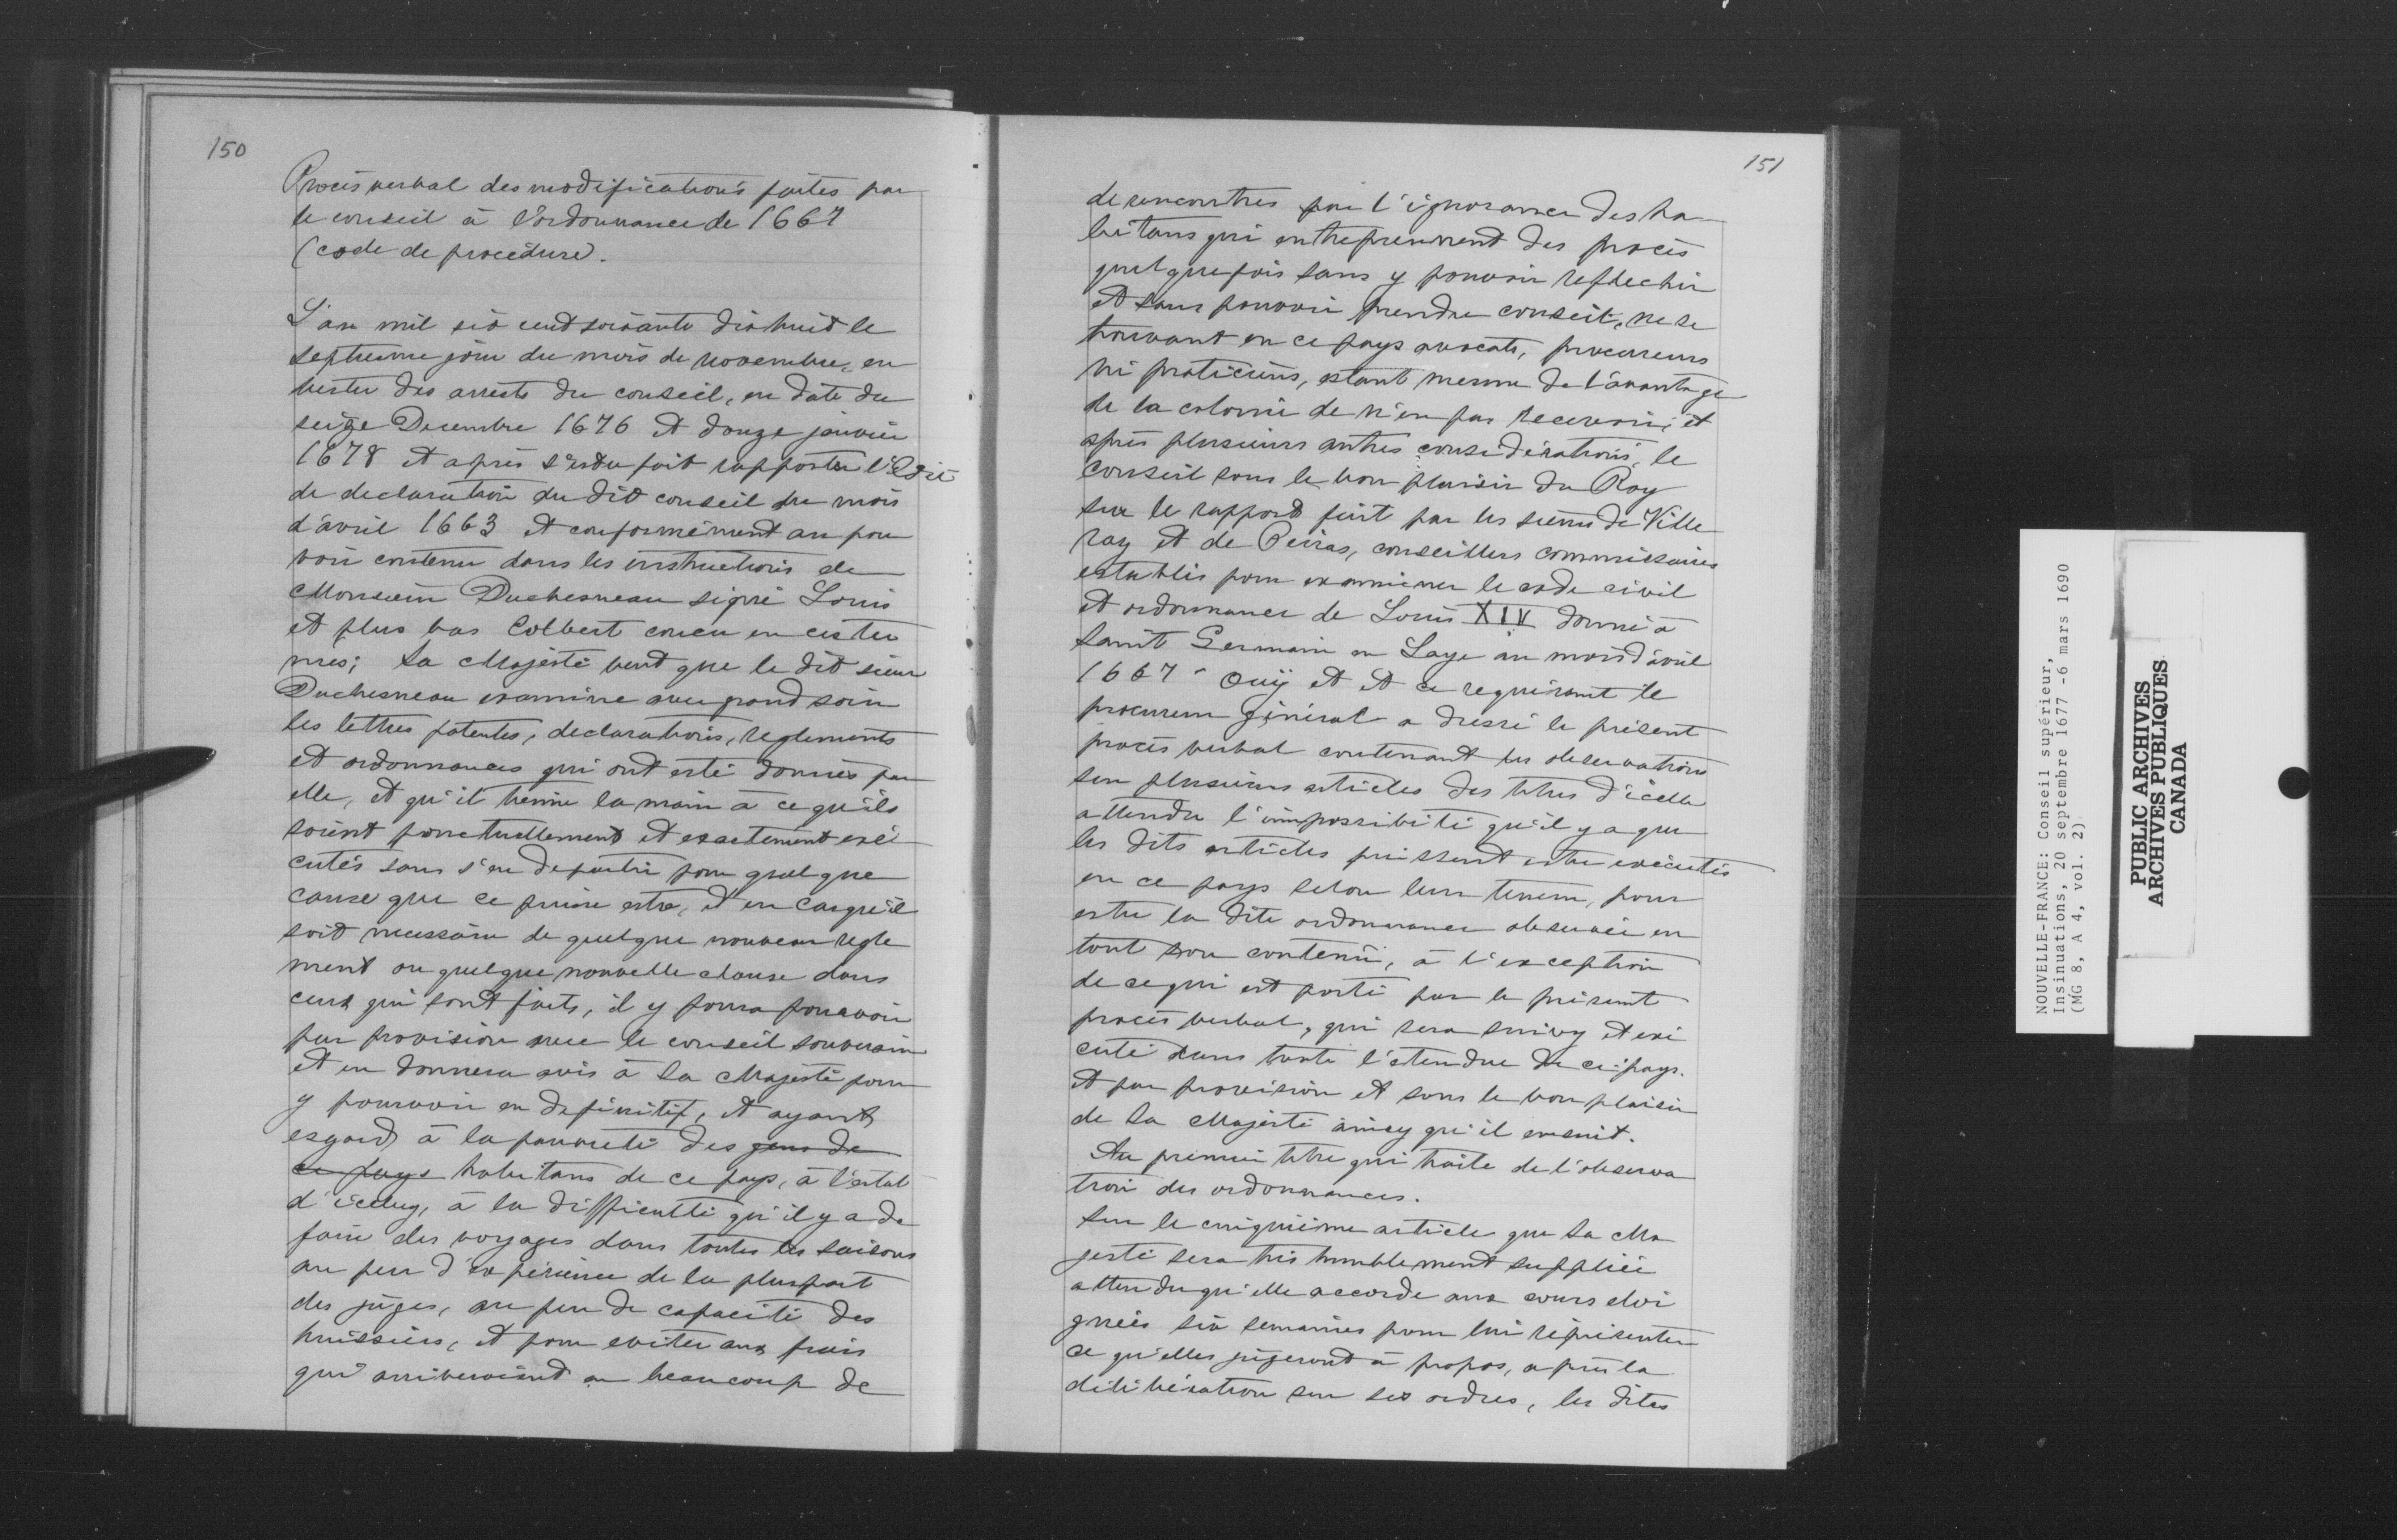 150
Procès verbal des modifications faites par
le conseil à l'ordonnance de 1667
(code de procédure).
L'an mil six cent soixante dix huit le
septiesme jour du mois de novembre, en
vertu des arrests du conseil, en date du
seize Decembre 1676 et douze janvier
1678 et après s'estre fait rapporter l'Edit
de declaration du dit conseil du mois
d'avril 1663 et conformément au pou
voir contenu dans les instructions de
Monsieur Duchesneau signé Louis
et plus bas Colbert conçu en ces ter
mes; Sa Majesté veut que le dit sieur
Duchesneau examine avec grand soin
les lettres patentes, declarations, reglements
et ordonnances qui ont esté donnés par
elle, et qu'il tienne la main à ce qu'ils
soient ponctuellement et exactement exé
cutés sans s'en departir pour quelque
cause que ce puisse estre, et en cas qu'il
soit necessaire de quelque nouveau regle
ment ou quelque nouvelle clause dans
ceux qui sont faits, il y poura pourvoir
par provision avec le conseil souverain
et en donnera avis à Sa Majesté pour
y pourvoir en definitif, et ayant
esgard à la pauvreté des gens de
ce pays habitans de ce pays, à l'estat
d'icelluy, à la difficulté qu'il y a de
faire des voyages dans toutes les saisons
au peu d'expérience de la pluspart
des juges, au peu de capacité des
huissiers, et pour eviter aux frais
qui arriveroient en beaucoup de
151
de rencontres par l'ignorance des ha
bitans qui entreprennent des procès
quelquefois sans y pouvoir reflechir
et sans pouvoir prendre conseil, ne se
trouvant en ce pays avocats, procureurs
ni praticiens, estant mesme de l'avantage
de la colonie de n'en pas recevoir; et
après plusieurs autres considérations, le
conseil sous le bon plaisir du Roy
sur le rapport fait par les sieurs de Ville
ray et de Peiras, conseillers commissaires
establis pour examiner le code civil
et ordonnance de Louis XIV donné à
Saint Germain en Laye au mois d'avril
1667 Ouÿ et et ce requérant le
procureur général a dressé le présent
procès verbal contenant les observations
sur plusieurs articles des titres d'icelle
attendu l'impossibilité qu'il y a que
les dits articles puissent estre exécutés
en ce pays selon leur teneur, pour
estre la dite ordonnance observée en
tout son contenu, à l'exception
de ce qui est porté par le présent
procès verbal, qui sera suivy et exé
cuté dans toute l'etendue de ce pays.
et par provision et sous le bon plaisir
de Sa Majesté ainsy qu'il ensuit.
Au premier titre qui traite de l'observa
tion des ordonnances.
Sur le cinquième article que Sa Ma
jesté sera très humblement suppliée
attendu qu'elle accorde aux cours eloi
gnées six semaines pour lui représenter
ce qu'elles jugeront à propos, après la
délibération sur ses ordres, les dites
NOUVELLE-FRANCE: Conseil supérieur,
Insinuations, 20 septembre 1677 -6 mars 1690
(MG 8, A 4, vol. 2)
PUBLIC ARCHIVES
ARCHIVES PUBLIQUES
CANADA